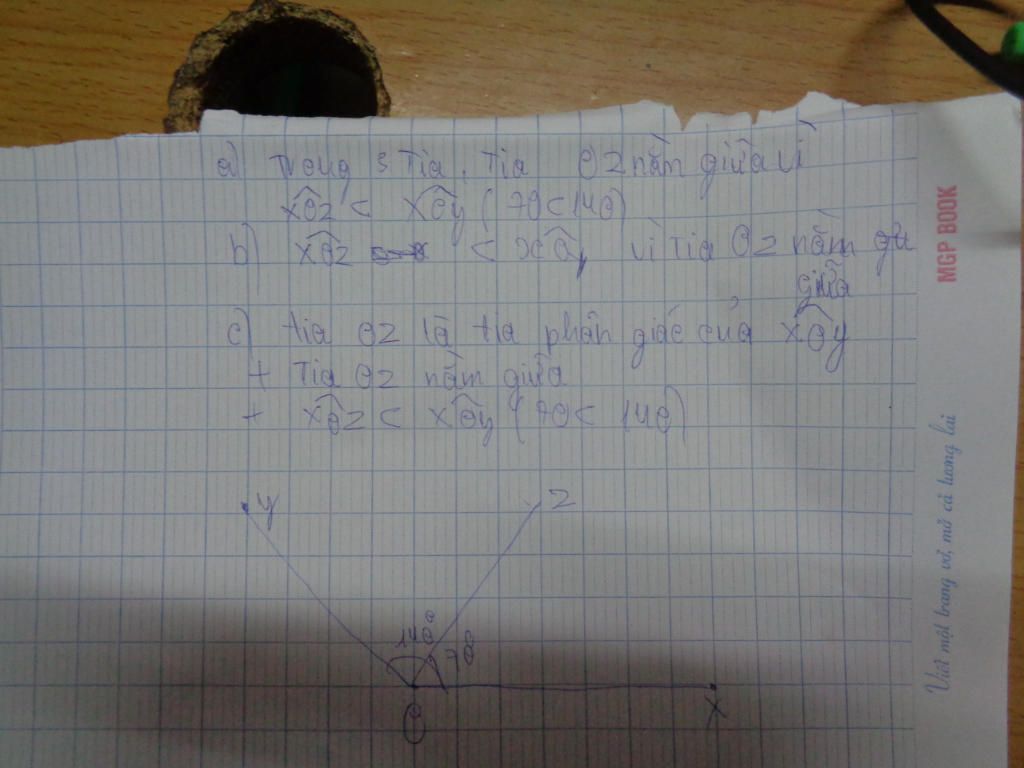 a) Trong 3 Tia, Tia Oz nằm giữa vì
xOz < xOy (70 < 140)
b) xOz < xOy vì Tia Oz nằm
giữa
c) tia Oz là tia phân giác của xOy
+ Tia Oz nằm giữa
+ xOz < xOy (70 < 140)
y
z
140°
70
O
x
MGP BOOK
Viết một trang vở, mở cả tương lai